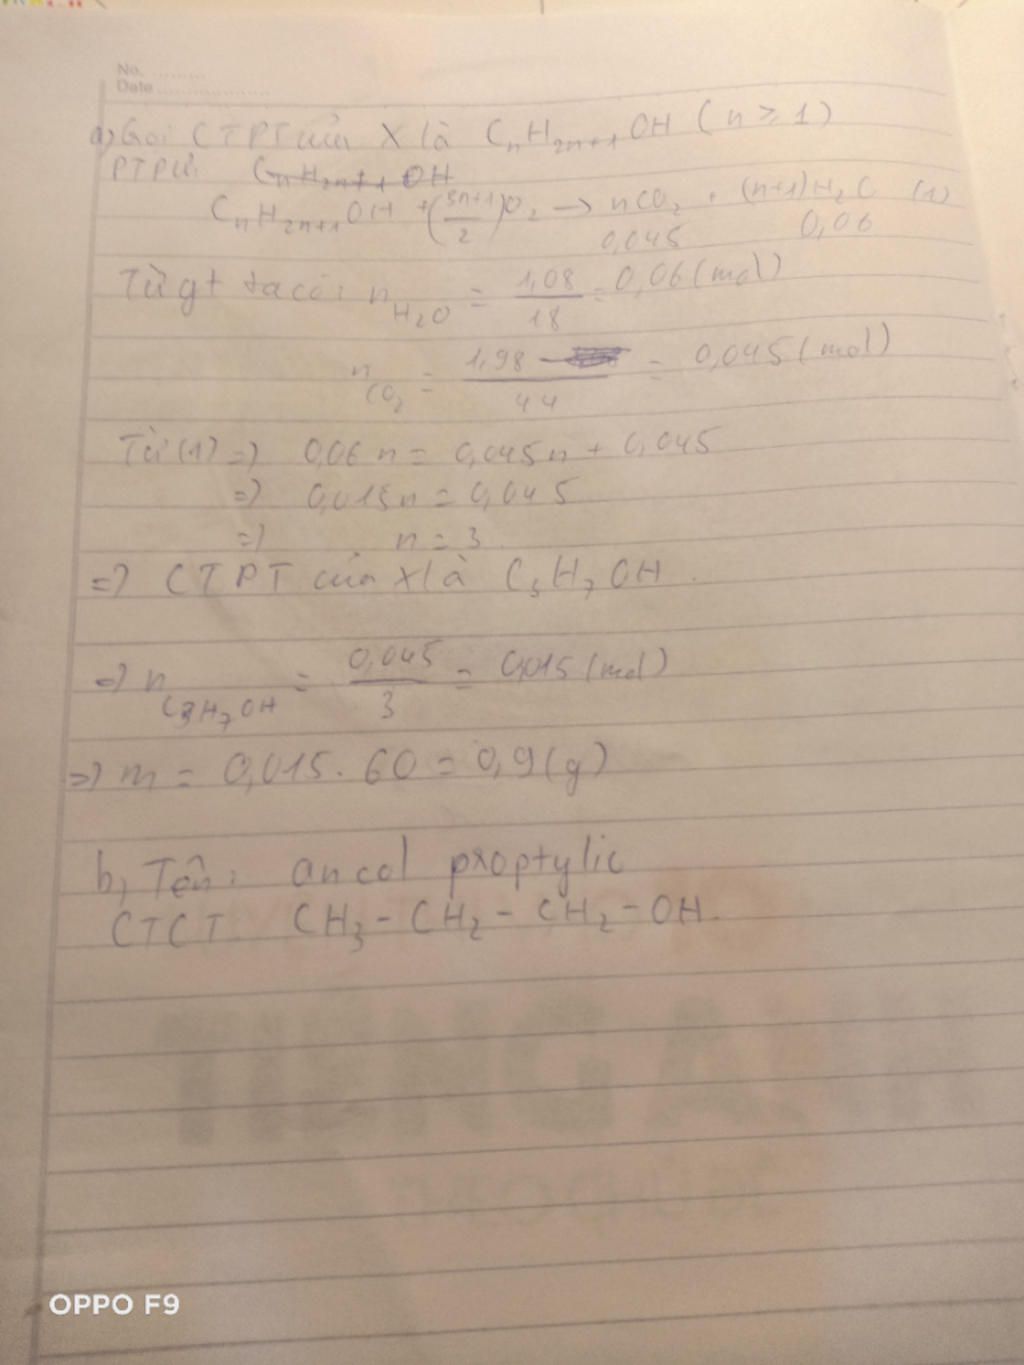 No. .........
Date ....................
a) Gọi CTPT của X là CnH2n+1OH ( n ≥ 1 )
PTPƯ: CnH2n+1OH
CnH2n+1OH + (3n+1/2)O2 → nCO2 + (n+1)H2O (1)
0,045 0,06
Từ gt ta có: nH2O = 1,08/18 = 0,06 (mol)
nCO2 = 1,98/44 = 0,045 (mol)
Từ (1) => 0,06n = 0,045n + 0,045
=> 0,015n = 0,045
=> n = 3
=> CTPT của X là C3H7OH.
=> nC3H7OH = 0,045/3 = 0,015 (mol)
=> m = 0,015. 60 = 0,9 (g)
b, Tên: ancol proptylic
CTCT: CH3 - CH2 - CH2 - OH.
OPPO F9